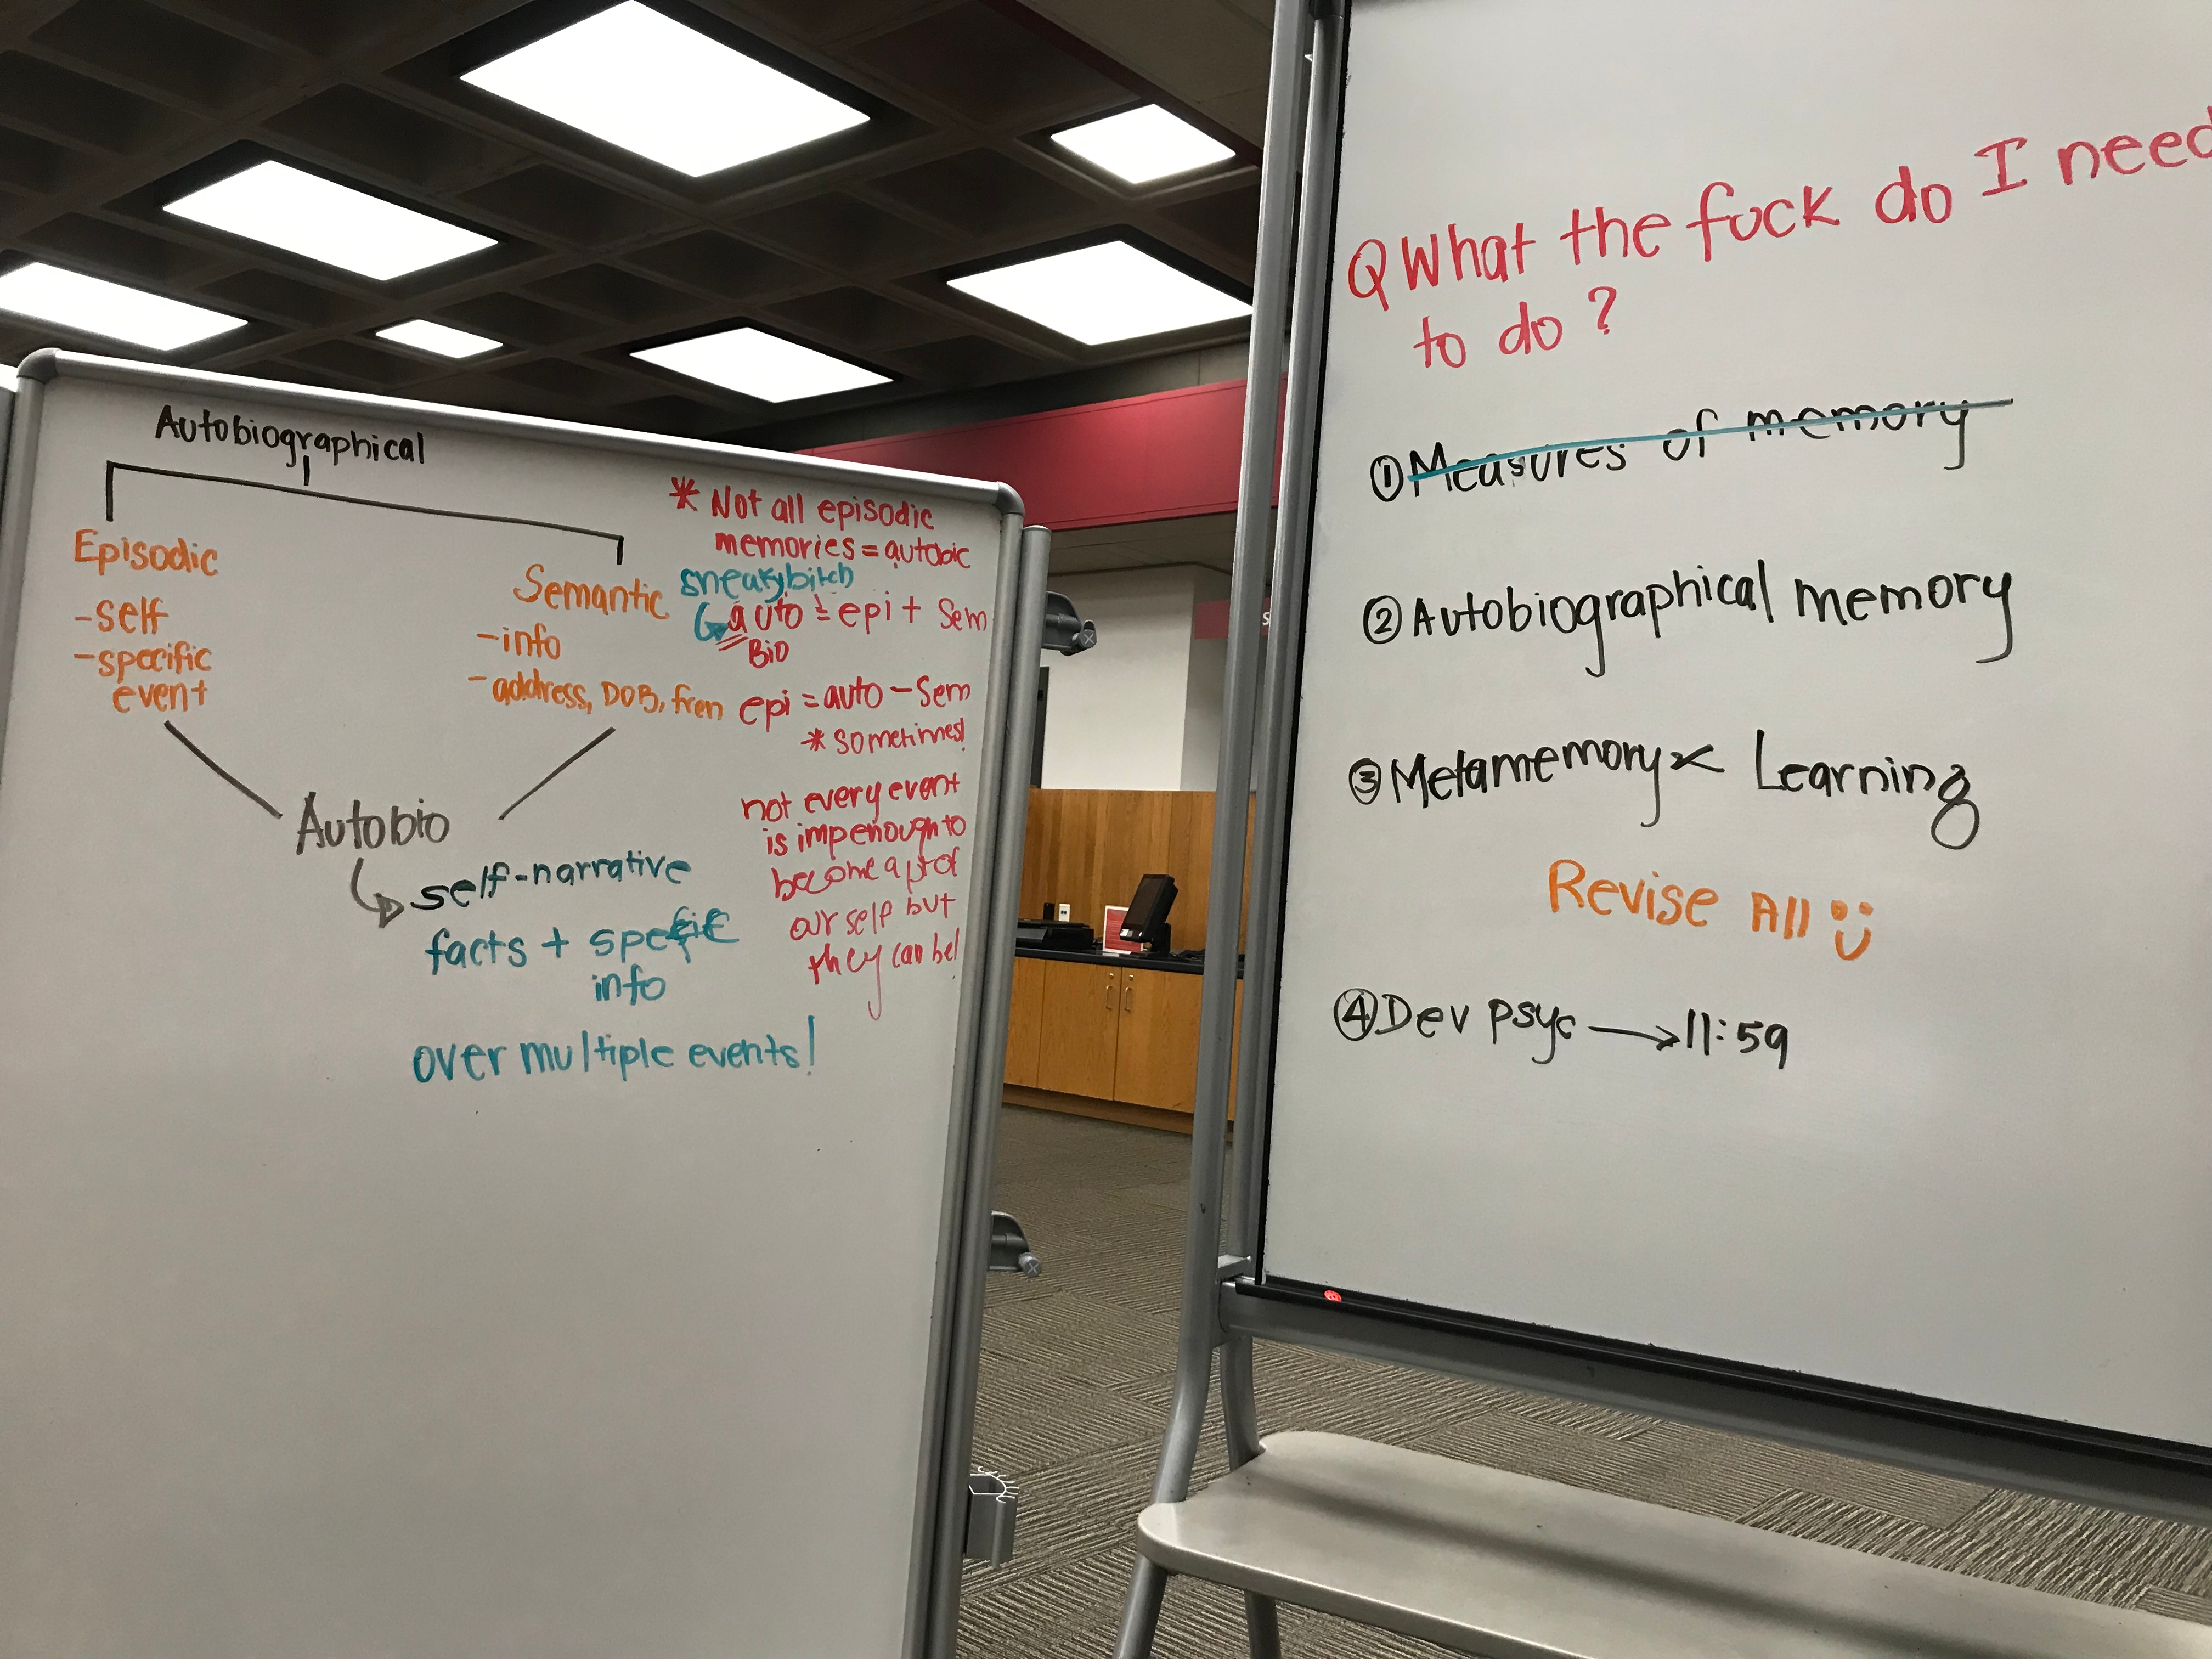 Autobiographical
Episodic
-self
-specific
event
Semantic
-info
-address, DOB, fren
Autobio
self-narrative
facts + specific
info
over multiple events!
* Not all episodic
memories = autobio
sneaky bitch
auto = epi + sem
Bio
epi = auto - sem
* sometimes!
not every event
is imp enough to
become a pt of
our self but
they can be!
Q What the fuck do I need
to do?
① Measures of memory
② Autobiographical memory
③ Metamemory Learning
Revise All
④ Dev psyc → 11:59